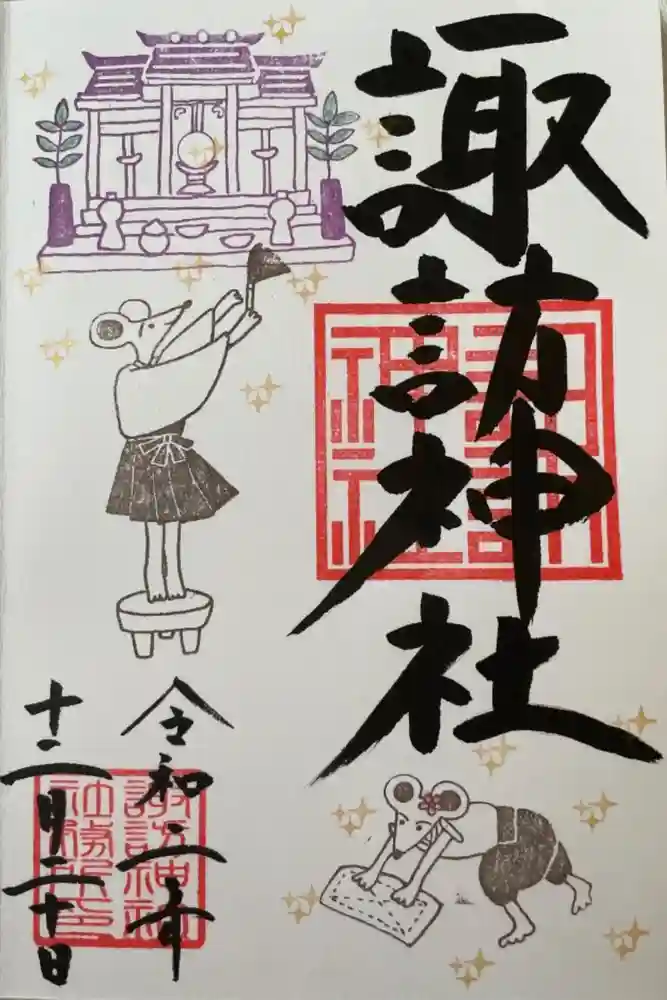 諏訪神社
諏訪神社
令和二年
十二月二十日
諏訪神社
社務所印